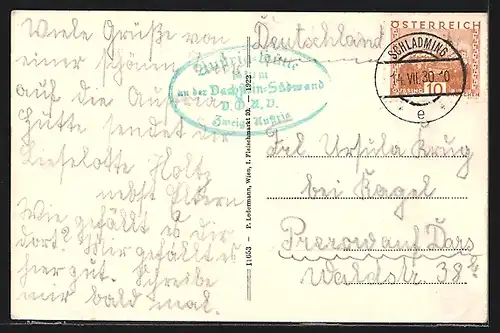 Viele Grüße von
einer schönen
auf die Austria
Hütte sendet dir
Lieselotte Holtz
nebst Eltern
Wie gefällt es dir
dort? Mir gefällt es
hier gut. Schreibe
mir bald mal.
Austriahütte
an der Dachstein-Südwand
Zweig Austria
11653 - P. Ledermann, Wien, I. Fleischmarkt 20. - 1922
Deutschland
ÖSTERREICH
10
SCHLADMING
VII. 30
e
Frl Ursula Krug
bei Kagel
Prerow auf Dars
Waldstr. 38